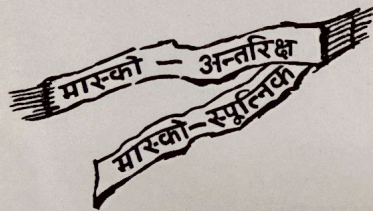 मास्को – अन्तरिक्ष
मास्को-स्पूत्निक